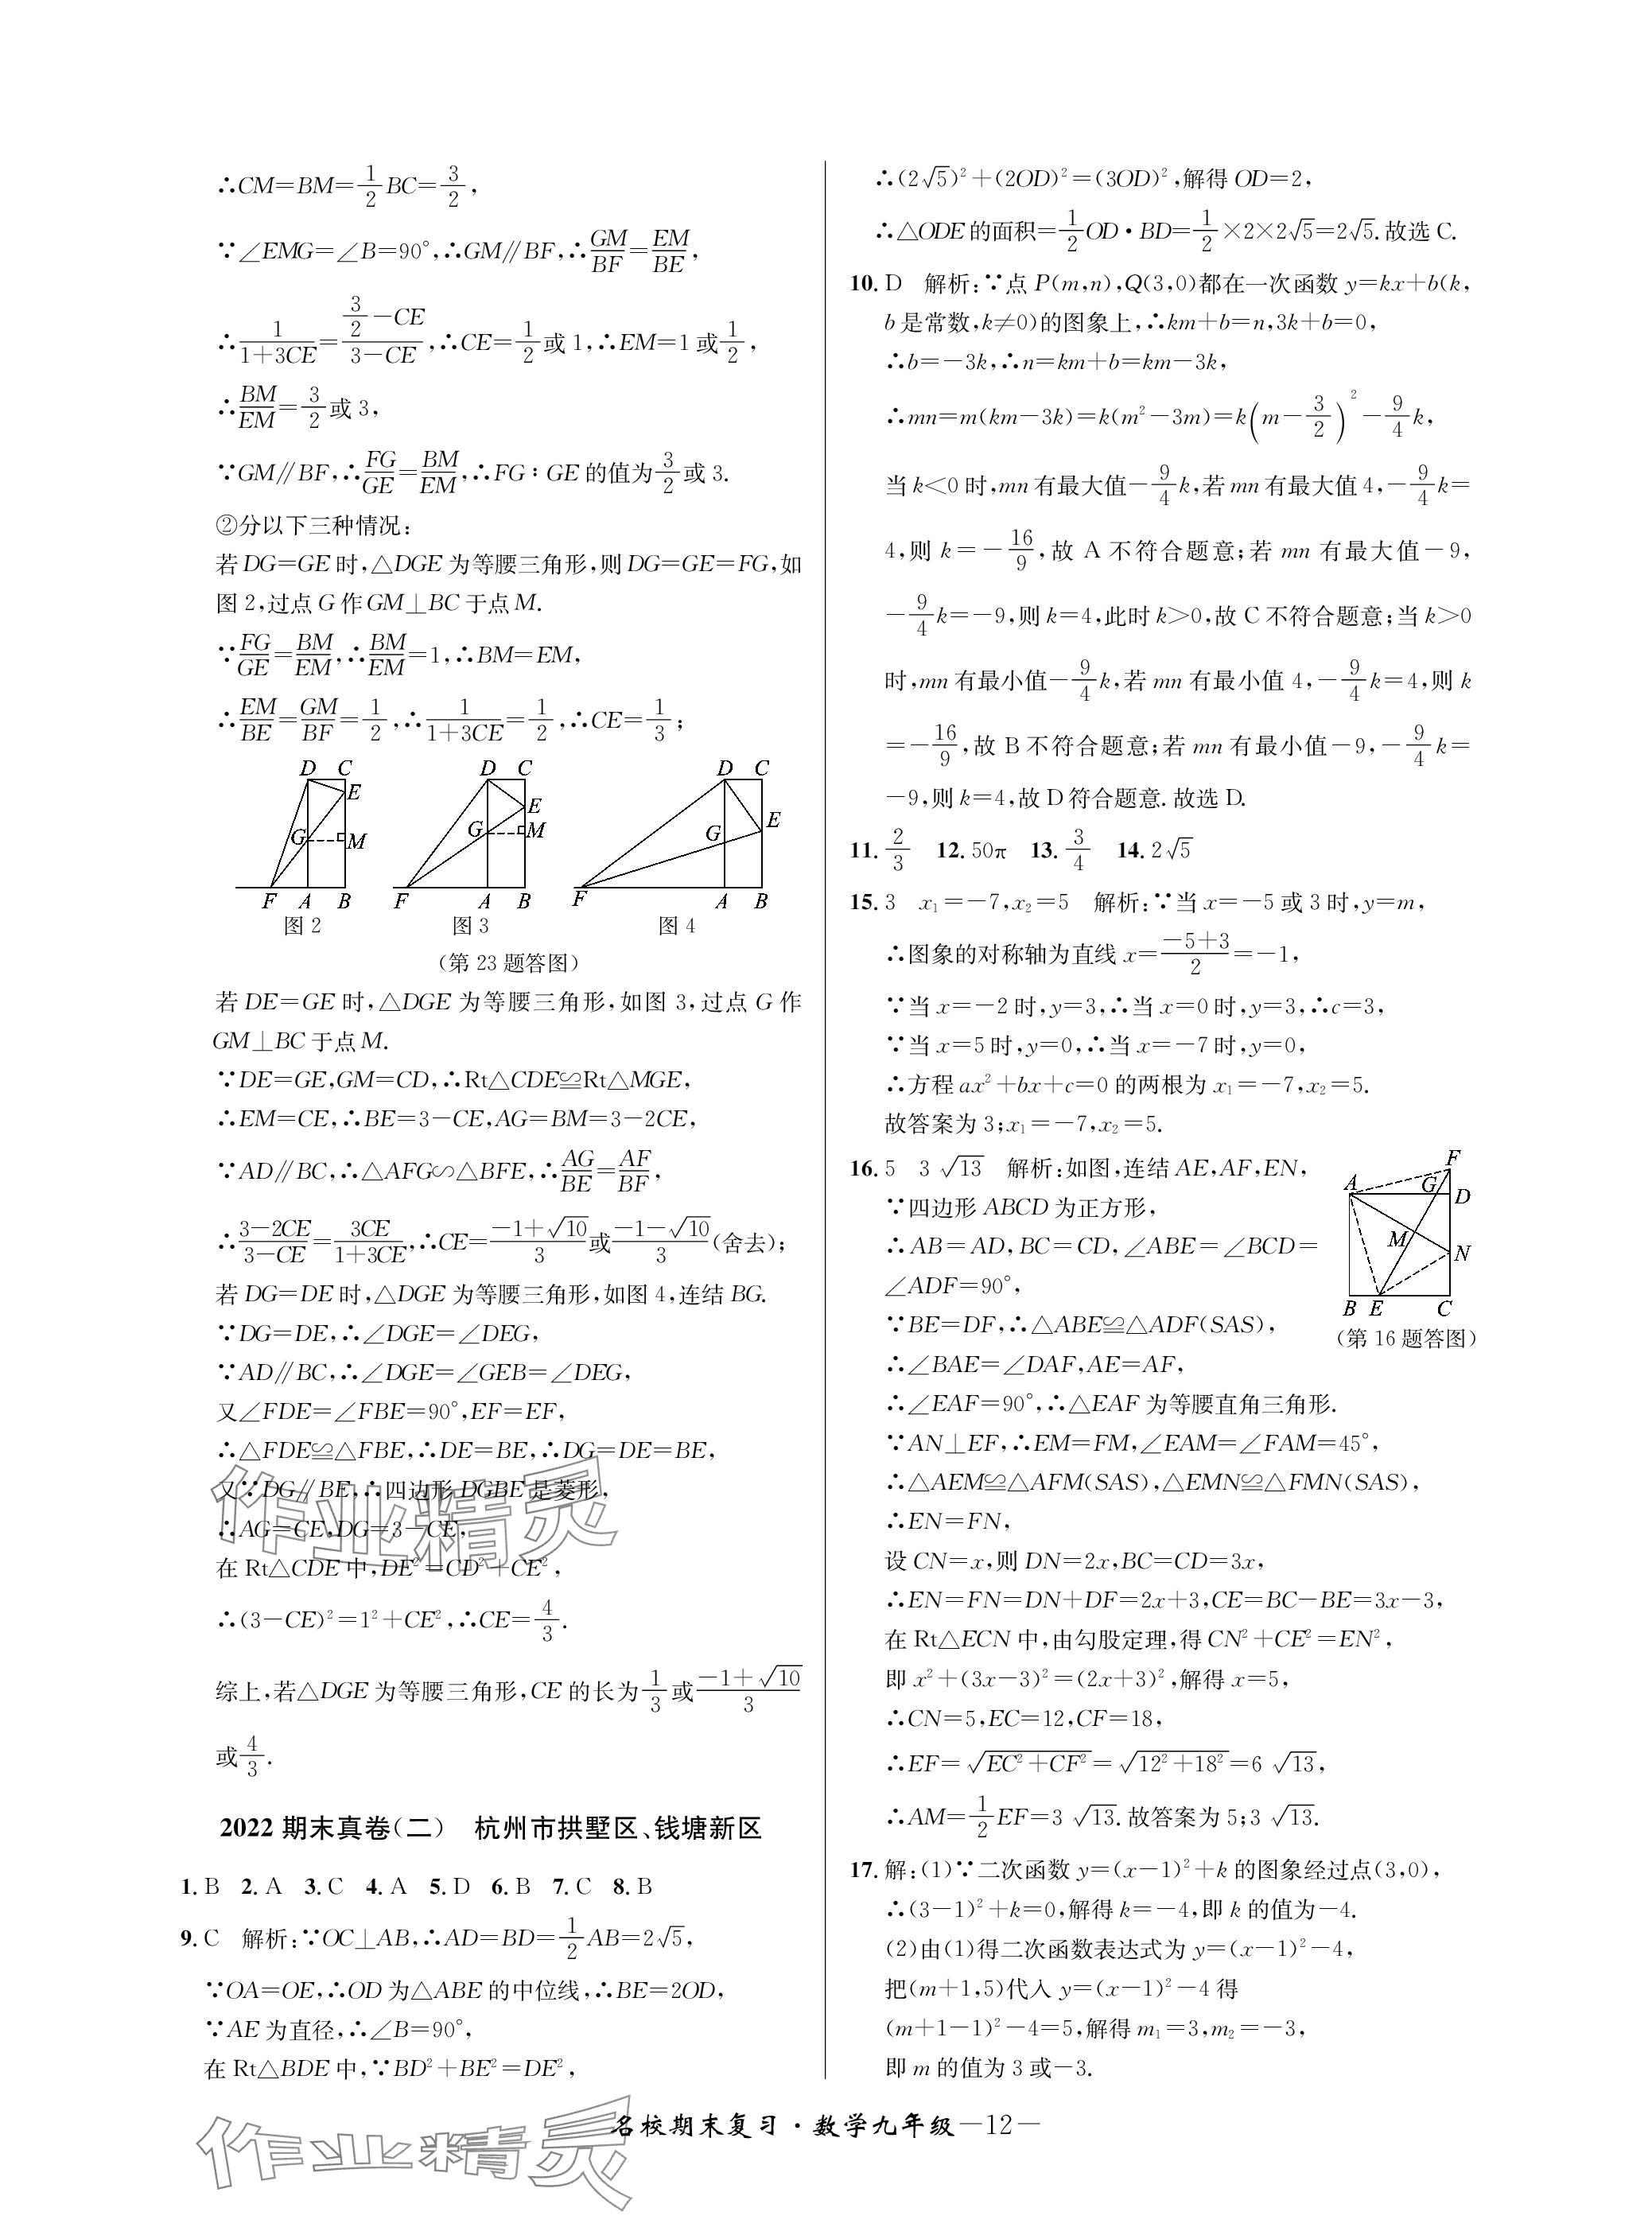 ∴CM=BM=1/2 BC=3/2,
∵∠EMG=∠B=90°,∴GM∥BF,∴GM/BF=EM/BE,
∴1/(1+3CE)=(3/2-CE)/(3-CE),∴CE=1/2或1,∴EM=1或1/2,
∴BM/EM=3/2或3,
∵GM∥BF,∴FG/GE=BM/EM,∴FG∶GE的值为3/2或3.
②分以下三种情况:
若DG=GE时,△DGE为等腰三角形,则DG=GE=FG,如
图2,过点G作GM⊥BC于点M.
∵FG/GE=BM/EM,∴BM/EM=1,∴BM=EM,
∴EM/BE=GM/BF=1/2,∴1/(1+3CE)=1/2,∴CE=1/3;
D C E G M F A B
图2
D C E G M F A B
图3
D C E G F A B
图4
(第23题答图)
若DE=GE时,△DGE为等腰三角形,如图3,过点G作
GM⊥BC于点M.
∵DE=GE,GM=CD,∴Rt△CDE≌Rt△MGE,
∴EM=CE,∴BE=3-CE,AG=BM=3-2CE,
∵AD∥BC,∴△AFG∽△BFE,∴AG/BE=AF/BF,
∴(3-2CE)/(3-CE)=3CE/(1+3CE),∴CE=(-1+√10)/3或(-1-√10)/3(舍去);
若DG=DE时,△DGE为等腰三角形,如图4,连结BG.
∵DG=DE,∴∠DGE=∠DEG,
∵AD∥BC,∴∠DGE=∠GEB=∠DEG,
又∠FDE=∠FBE=90°,EF=EF,
∴△FDE≌△FBE,∴DE=BE,∴DG=DE=BE,
又∵DG∥BE,∴四边形DGBE是菱形,
∴AG=CE,DG=3-CE,
在Rt△CDE中,DE²=CD²+CE²,
∴(3-CE)²=1²+CE²,∴CE=4/3.
综上,若△DGE为等腰三角形,CE的长为1/3或(-1+√10)/3
或4/3.
2022期末真卷(二) 杭州市拱墅区、钱塘新区
1. B 2. A 3. C 4. A 5. D 6. B 7. C 8. B
9. C 解析:∵OC⊥AB,∴AD=BD=1/2 AB=2√5,
∵OA=OE,∴OD为△ABE的中位线,∴BE=2OD,
∵AE为直径,∴∠B=90°,
在Rt△BDE中,∵BD²+BE²=DE²,
∴(2√5)²+(2OD)²=(3OD)²,解得OD=2,
∴△ODE的面积=1/2 OD·BD=1/2×2×2√5=2√5.故选C.
10. D 解析:∵点P(m,n),Q(3,0)都在一次函数y=kx+b(k,
b是常数,k≠0)的图象上,∴km+b=n,3k+b=0,
∴b=-3k,∴n=km+b=km-3k,
∴mn=m(km-3k)=k(m²-3m)=k(m-3/2)²-9/4 k,
当k<0时,mn有最大值-9/4 k,若mn有最大值4,-9/4 k=
4,则k=-16/9,故A不符合题意;若mn有最大值-9,
-9/4 k=-9,则k=4,此时k>0,故C不符合题意;当k>0
时,mn有最小值-9/4 k,若mn有最小值4,-9/4 k=4,则k
=-16/9,故B不符合题意;若mn有最小值-9,-9/4 k=
-9,则k=4,故D符合题意.故选D.
11. 2/3 12. 50π 13. 3/4 14. 2√5
15. 3 x₁=-7,x₂=5 解析:∵当x=-5或3时,y=m,
∴图象的对称轴为直线x=(-5+3)/2=-1,
∵当x=-2时,y=3,∴当x=0时,y=3,∴c=3,
∵当x=5时,y=0,∴当x=-7时,y=0,
∴方程ax²+bx+c=0的两根为x₁=-7,x₂=5.
故答案为3;x₁=-7,x₂=5.
16. 5 3√13 解析:如图,连结AE,AF,EN,
∵四边形ABCD为正方形,
∴AB=AD,BC=CD,∠ABE=∠BCD=
∠ADF=90°,
∵BE=DF,∴△ABE≌△ADF(SAS),
∴∠BAE=∠DAF,AE=AF,
A F G D M N B E C
(第16题答图)
∴∠EAF=90°,∴△EAF为等腰直角三角形.
∵AN⊥EF,∴EM=FM,∠EAM=∠FAM=45°,
∴△AEM≌△AFM(SAS),△EMN≌△FMN(SAS),
∴EN=FN,
设CN=x,则DN=2x,BC=CD=3x,
∴EN=FN=DN+DF=2x+3,CE=BC-BE=3x-3,
在Rt△ECN中,由勾股定理,得CN²+CE²=EN²,
即x²+(3x-3)²=(2x+3)²,解得x=5,
∴CN=5,EC=12,CF=18,
∴EF=√(EC²+CF²)=√(12²+18²)=6√13,
∴AM=1/2 EF=3√13.故答案为5;3√13.
17. 解:(1)∵二次函数y=(x-1)²+k的图象经过点(3,0),
∴(3-1)²+k=0,解得k=-4,即k的值为-4.
(2)由(1)得二次函数表达式为y=(x-1)²-4,
把(m+1,5)代入y=(x-1)²-4得
(m+1-1)²-4=5,解得m₁=3,m₂=-3,
即m的值为3或-3.
名校期末复习·数学九年级—12—
作业精灵
作业精灵